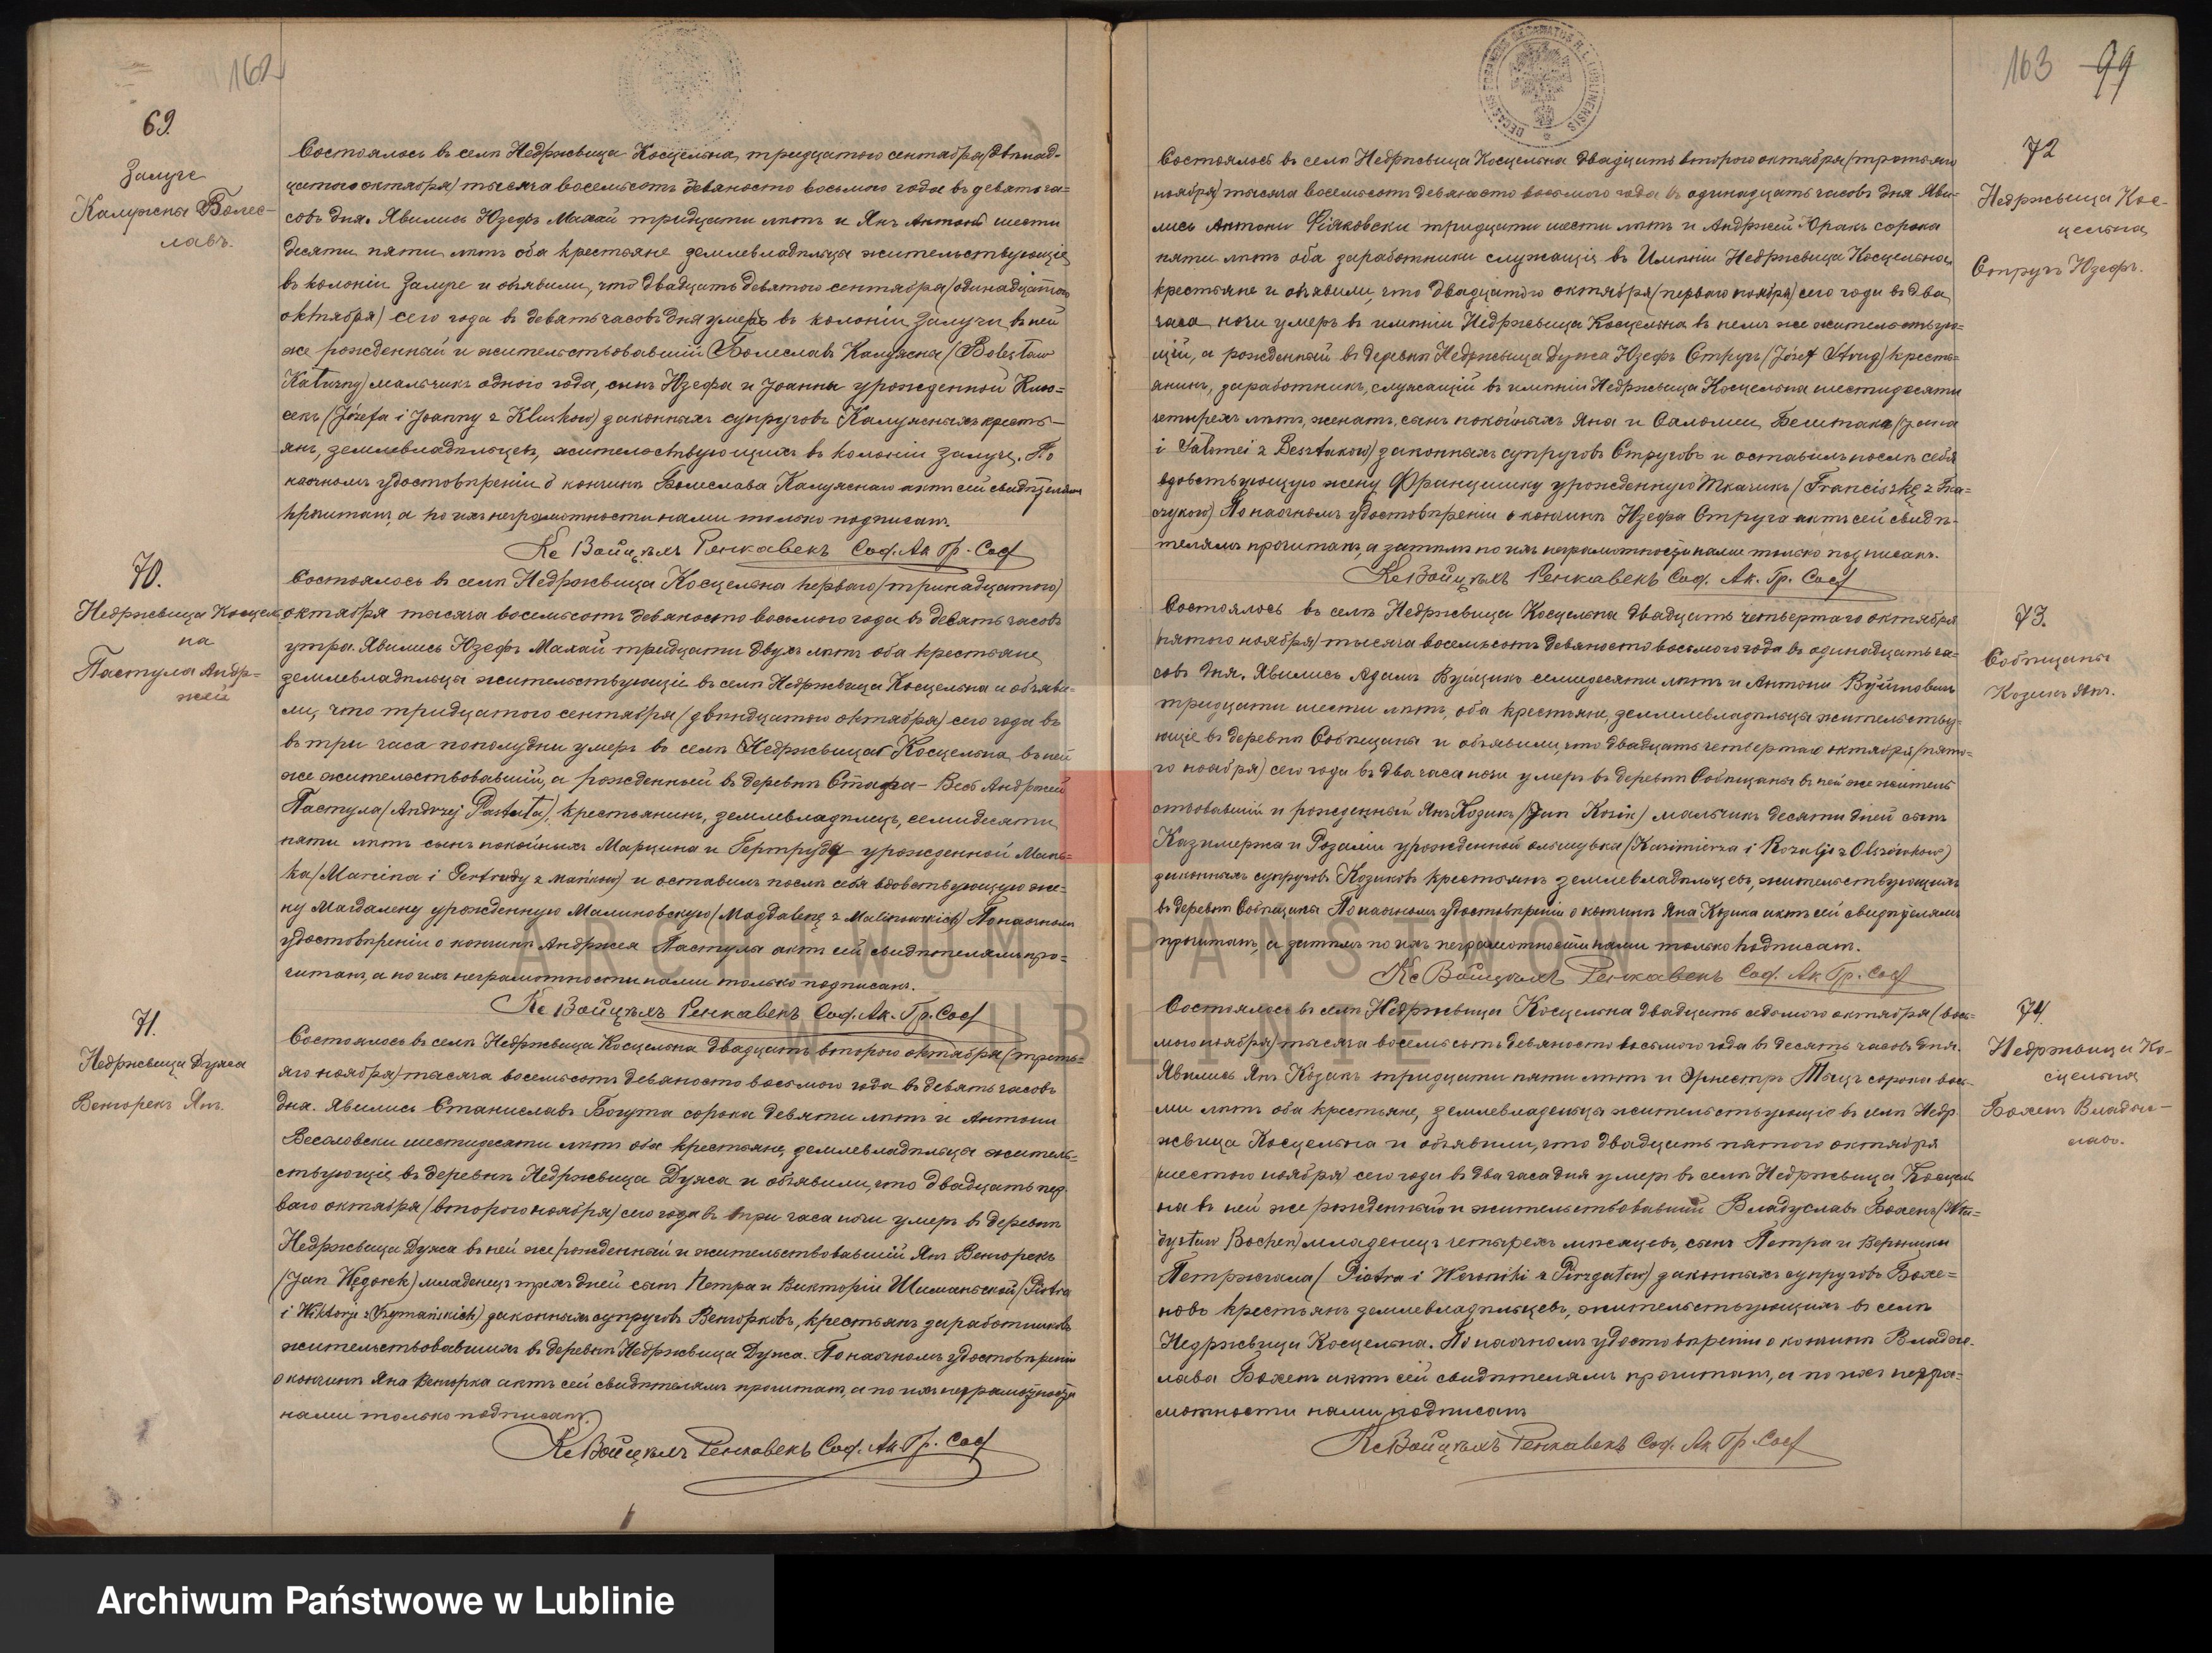 162
69.
Залуче
Калужны Болес-
лавъ.
Состоялось въ селѣ Недржвица Косцельна, тридцатого сентября (двѣнад-
цатого октября) тысяча восемьсотъ девяносто восьмого года въ девять ча-
совъ дня. Явились Юзефъ Махай тридцати лѣтъ и Янъ Антони шести
десяти пяти лѣтъ оба крестьяне землевладѣльцы жительствующіе
въ колоніи Залуче и объявили, что двадцать девятого сентября (одинадцатого
октября) сего года въ девять часовъ дня умеръ въ колоніи Залучи, въ ней
же рожденный и жительствовавшій Болеславъ Калужны (Bolesław
Kałużny) мальчикъ одного года, сынъ Юзефа и Іоанны урожденной Клю-
секъ (Józefa i Joanny z Klusków) законныхъ супруговъ Калужныхъ кресть-
янъ, землевладѣльцевъ, жительствующихъ въ колоніи Залуче. По
наочномъ удостовѣреніи о кончинѣ Болеслава Калужнаго актъ сей свидѣтелямъ
прочитанъ, а по ихъ неграмотности нами только подписанъ.
Кс Войцѣхъ Ренкавекъ Сод. Ак. Гр. Сост
70.
Недржвица Косцель
на
Пастула Андр-
жей
Состоялось въ селѣ Недржвица Косцельна перваго (тринадцатого)
октября тысяча восемьсотъ девяносто восьмого года въ девять часовъ
утра. Явились Юзефъ Махай тридцати двухъ лѣтъ оба крестьяне
землевладѣльцы жительствующіе въ селѣ Недржвица Косцельна и объяви-
ли, что тридцатого сентября (двѣнадцатого октября) сего года въ
въ три часа пополудни умеръ въ селѣ Недржвица Косцельна, въ ней
же жительствовавшій, а рожденный въ деревнѣ Стара-Весь Андржей
Пастула (Andrzej Pastuła), крестьянинъ, землевладѣлецъ, семидесяти
пяти лѣтъ сынъ покойныхъ Марцина и Гертруды урожденной Мань-
ка (Marcina i Gertrudy z Mańków) и оставилъ послѣ себя вдовствующую же-
ну Магдалену урожденную Малиновскую (Magdalenę z Malinowskich) По наочномъ
удостовѣреніи о кончинѣ Андржея Пастулы актъ сей свидѣтелямъ про-
читанъ, а по ихъ неграмотности нами только подписанъ.
Кс Войцѣхъ Ренкавекъ Сод. Ак. Гр. Сост
71.
Недржвица Дужа
Венгорекъ Янъ.
Состоялось въ селѣ Недржвица Косцельна двадцать второго октября (треть-
яго ноября) тысяча восемьсотъ девяносто восьмого года въ девять часовъ
дня. Явились Станиславъ Богута сорока девяти лѣтъ и Антони
Весоловски шестидесяти лѣтъ оба крестьяне, землевладѣльцы житель-
ствующіе въ деревнѣ Недржвица Дужа и объявили, что двадцать пер
ваго октября (второго ноября) сего года въ три часа ночи умеръ въ деревнѣ
Недржвица Дужа въ ней же рожденный и жительствовавшій Янъ Венгорекъ
(Jan Węgorek) младенецъ трехъ дней сынъ Петра и Викторіи Шиманьской (Piotra
i Wiktorji z Szymańskich) законныхъ супруговъ Венгорковъ, крестьянъ заработниковъ
жительствовавшихъ въ деревнѣ Недржвица Дужа. По наочномъ удостовѣреніи
о кончинѣ Яна Венгорка актъ сей свидѣтелямъ прочитанъ, а по ихъ неграмотности
нами только подписанъ.
Кс Войцѣхъ Ренкавекъ Сод. Ак. Гр. Сост
163 99
DECANATUS LUBLINENSIS
72
Недржвица Кос-
цельна
Стругъ Юзефъ.
Состоялось въ селѣ Недржвица Косцельна двадцать второго октября (третьяго
ноября) тысяча восемьсотъ девяносто восьмого года въ одинадцать часовъ дня Яви-
лись Антони Фіяковски тридцати шести лѣтъ и Андржей Юракъ сорока
пяти лѣтъ оба заработники служащіе въ Имѣніи Недржвица Косцельна
крестьяне и объявили, что двадцатого октября (перваго ноября) сего года въ два
часа ночи умеръ въ имѣніи Недржвица Косцельна въ немъ же жительствую-
щій, а рожденный въ деревнѣ Недржвица Дужа Юзефъ Стругъ (Józef Strug) кресть-
янинъ, заработникъ, служащій въ имѣніи Недржвица Косцельна шестидесяти
четырехъ лѣтъ, женатъ, сынъ покойныхъ Яна и Саломеи Бештакъ (Jana
i Salomei z Besztaków) законныхъ супруговъ Струговъ и оставилъ послѣ себя
вдовствующую жену Францишку урожденную Ткачикъ (Franciszkę z Tka-
czyków) По наочномъ удостовѣреніи о кончинѣ Юзефа Струга актъ сей свидѣ-
телямъ прочитанъ, а затѣмъ по ихъ неграмотности нами только подписанъ.
Кс Войцѣхъ Ренкавекъ Сод. Ак. Гр. Сост
73.
Собѣщаны
Козикъ Янъ.
Состоялось въ селѣ Недржвица Косцельна двадцать четвертаго октября
(пятого ноября) тысяча восемьсотъ девяносто восьмого года въ одинадцать ча-
совъ дня. Явились Адамъ Вуйцикъ семидесяти лѣтъ и Антони Вуйтовичъ
тридцати шести лѣтъ, оба крестьяне, землевладѣльцы жительству-
ющіе въ деревнѣ Собѣщаны и объявили, что двадцать четвертаго октября (пято-
го ноября) сего года въ два часа ночи умеръ въ деревнѣ Собѣщаны въ ней же житель
ствовавшій и рожденный Янъ Козикъ (Jan Kozik) мальчикъ десяти дней сынъ
Казимержа и Розаліи урожденной Ольшувка (Kazimierza i Rozalji z Olszówków)
законныхъ супруговъ Козиковъ крестьянъ землевладѣльцевъ, жительствующихъ
въ деревнѣ Собѣщаны По наочномъ удостовѣреніи о кончинѣ Яна Козика актъ сей свидѣтелямъ
прочитанъ, а затѣмъ по ихъ неграмотности нами только подписанъ.
Кс Войцѣхъ Ренкавекъ Сод. Ак. Гр. Сост
74.
Недржвица Ко-
сцельна
Бохенъ Владис-
лавъ.
Состоялось въ селѣ Недржвица Косцельна двадцать седьмого октября (вось-
мого ноября) тысяча восемьсотъ девяносто восьмого года въ десять часовъ дня.
Явились Янъ Козакъ тридцати пяти лѣтъ и Эрнестъ Тыцъ сорока вось-
ми лѣтъ оба крестьяне, землевладѣльцы жительствующіе въ селѣ Недр
жвица Косцельна и объявили, что двадцать пятого октября
(шестого ноября) сего года въ два часа дня умеръ въ селѣ Недржвица Косцель
на въ ней же рожденный и жительствовавшій Владуславъ Бохенъ (Wła-
dysław Bochen) младенецъ четырехъ мѣсяцевъ, сынъ Петра и Вероники
Петржгала (Piotra i Weroniki z Pierzgałów) законныхъ супруговъ Бохе-
новъ крестьянъ землевладѣльцевъ, жительствующихъ въ селѣ
Недржвица Косцельна. По наочномъ удостовѣреніи о кончинѣ Владис-
лава Бохенъ актъ сей свидѣтелямъ прочитанъ, а по ихъ негра-
мотности нами подписанъ
Кс Войцѣхъ Ренкавекъ Сод. Ак Гр. Сост
ARCHIWUM PAŃSTWOWE
W LUBLINIE
Archiwum Państwowe w Lublinie